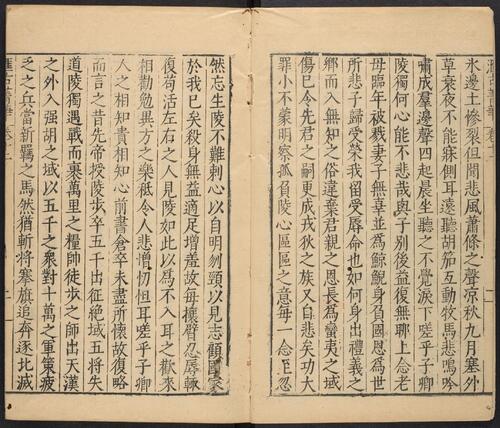 氷邊土慘裂但聞悲風蕭條之聲凉秋九月塞外
草衰夜不能寐側耳遠聽胡笳互動牧馬悲鳴吟
嘯成羣邊聲四起晨坐聽之不覺淚下嗟乎子卿
陵獨何心能不悲哉與子别後益復無聊上念老
母臨年被戮妻子無辜並為鯨鯢身負國恩為世
所悲子歸受榮我留受辱命也如何身出禮義之
鄉而入無知之俗違棄君親之恩長為蠻夷之域
傷已令先君之嗣更成戎狄之族又自悲矣功大
罪小不蒙明察孤負陵心區區之意每一念至忽
然忘生陵不難刺心以自明刎頸以見志顧國家
於我已矣殺身無益適足增羞故每攘臂忍辱輒
復苟活左右之人見陵如此以為不入耳之歡來
相勸勉異方之樂秪令人悲增忉怛耳嗟乎子卿
人之相知貴相知心前書倉卒未盡所懷故復略
而言之昔先帝授陵步卒五千出征絶域五將失
道陵獨遇戰而裹萬里之糧帥徒步之師出天漢
之外入强胡之域以五千之衆對十萬之軍策疲
乏之兵當新羈之馬然猶斬將搴旗追奔逐北滅